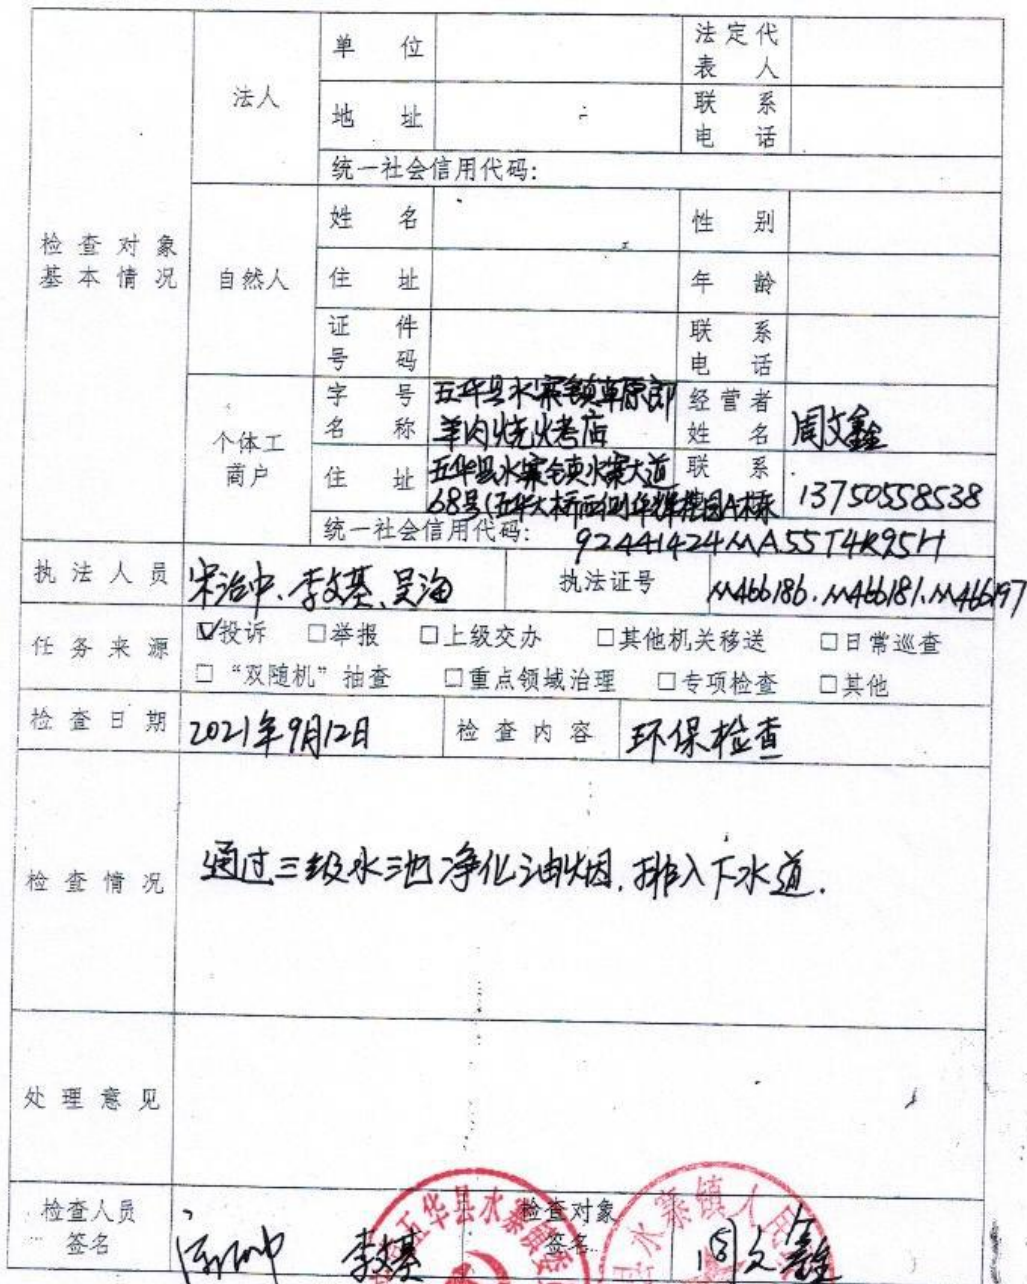 检查对象基本情况
法人
单位
法定代表人
地址
联系电话
统一社会信用代码:
自然人
姓名
性别
住址
年龄
证件号码
联系电话
个体工商户
字号名称
五华县水寨镇草原郎
羊肉烧烤店
经营者姓名
周文鑫
住址
五华县水寨镇水寨大道
68号(五华大桥西侧华辉楼园A栋
联系
13750558538
统一社会信用代码:
92441424MA55T4K95H
执法人员
宋治中、李文基、吴海
执法证号
M466186、M466181、M466197
任务来源
☑投诉 □举报 □上级交办 □其他机关移送 □日常巡查
□“双随机”抽查 □重点领域治理 □专项检查 □其他
检查日期
2021年9月12日
检查内容
环保检查
检查情况
通过三级水池净化油烟,排入下水道.
处理意见
检查人员签名
李文基
检查对象签名
周文鑫
五华县水寨镇
水寨镇人民